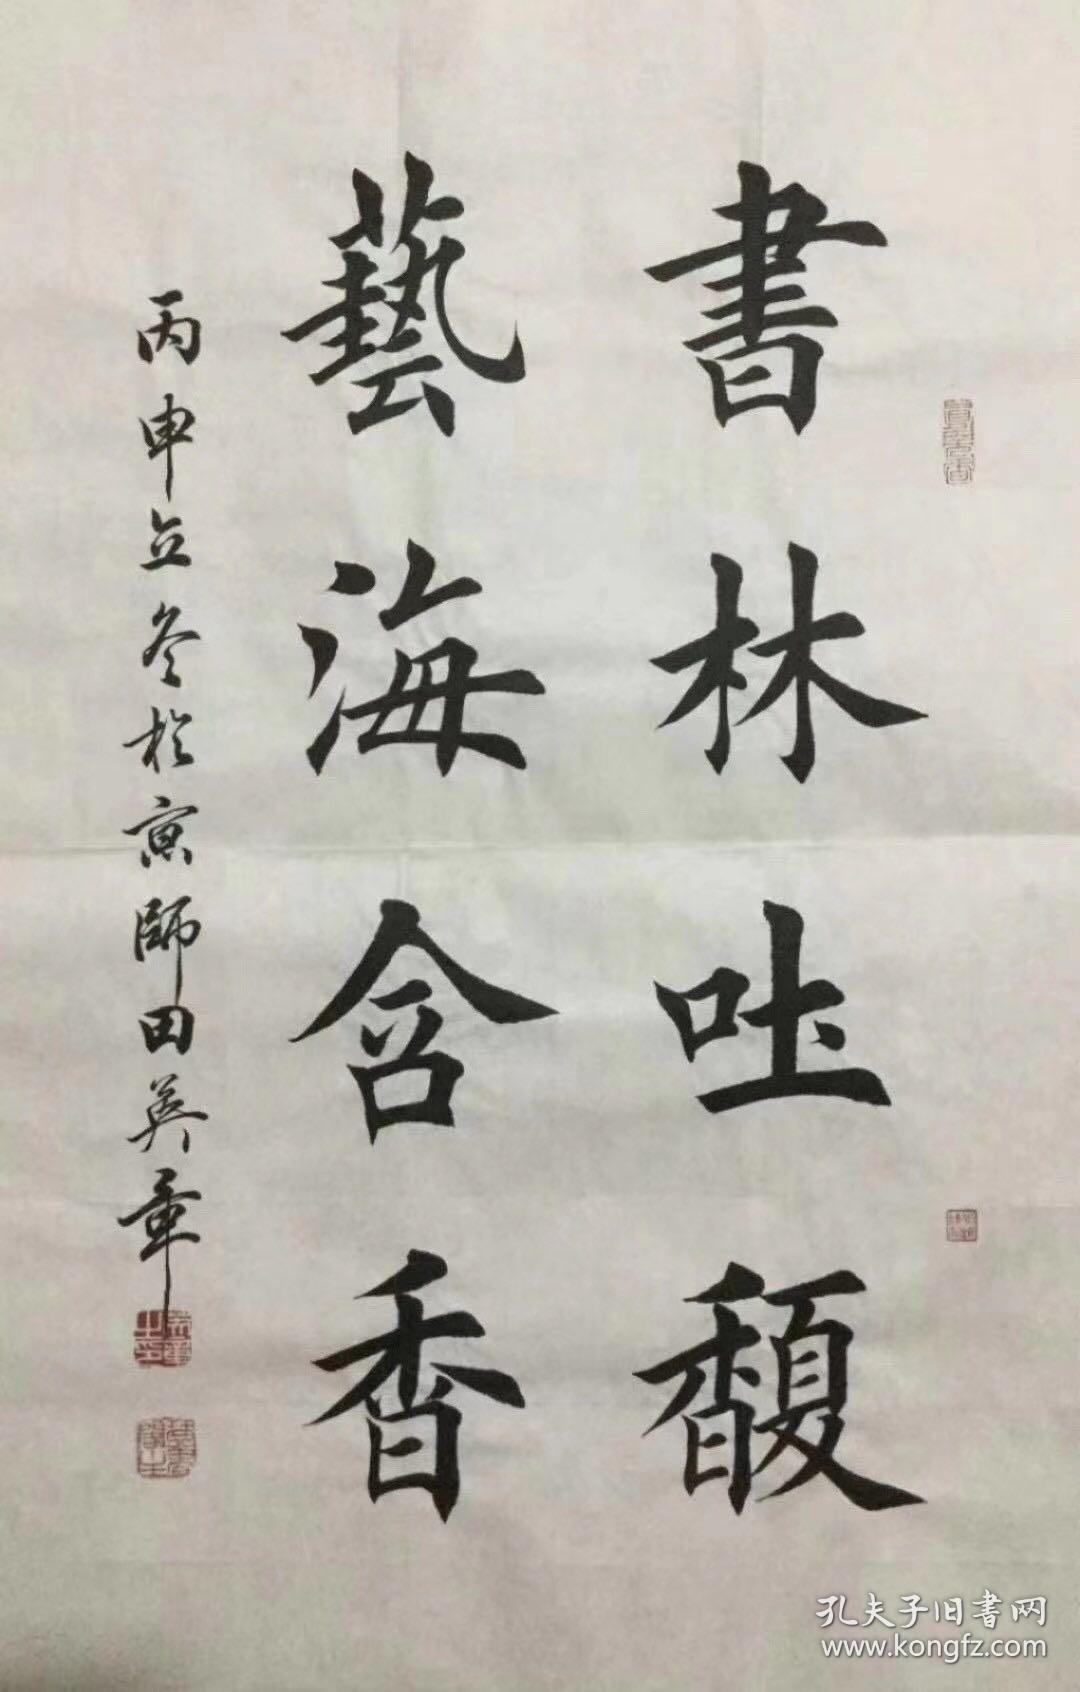 書林吐馥
藝海含香
丙申立冬於京師田英章
孔夫子旧書网
www.kongfz.com